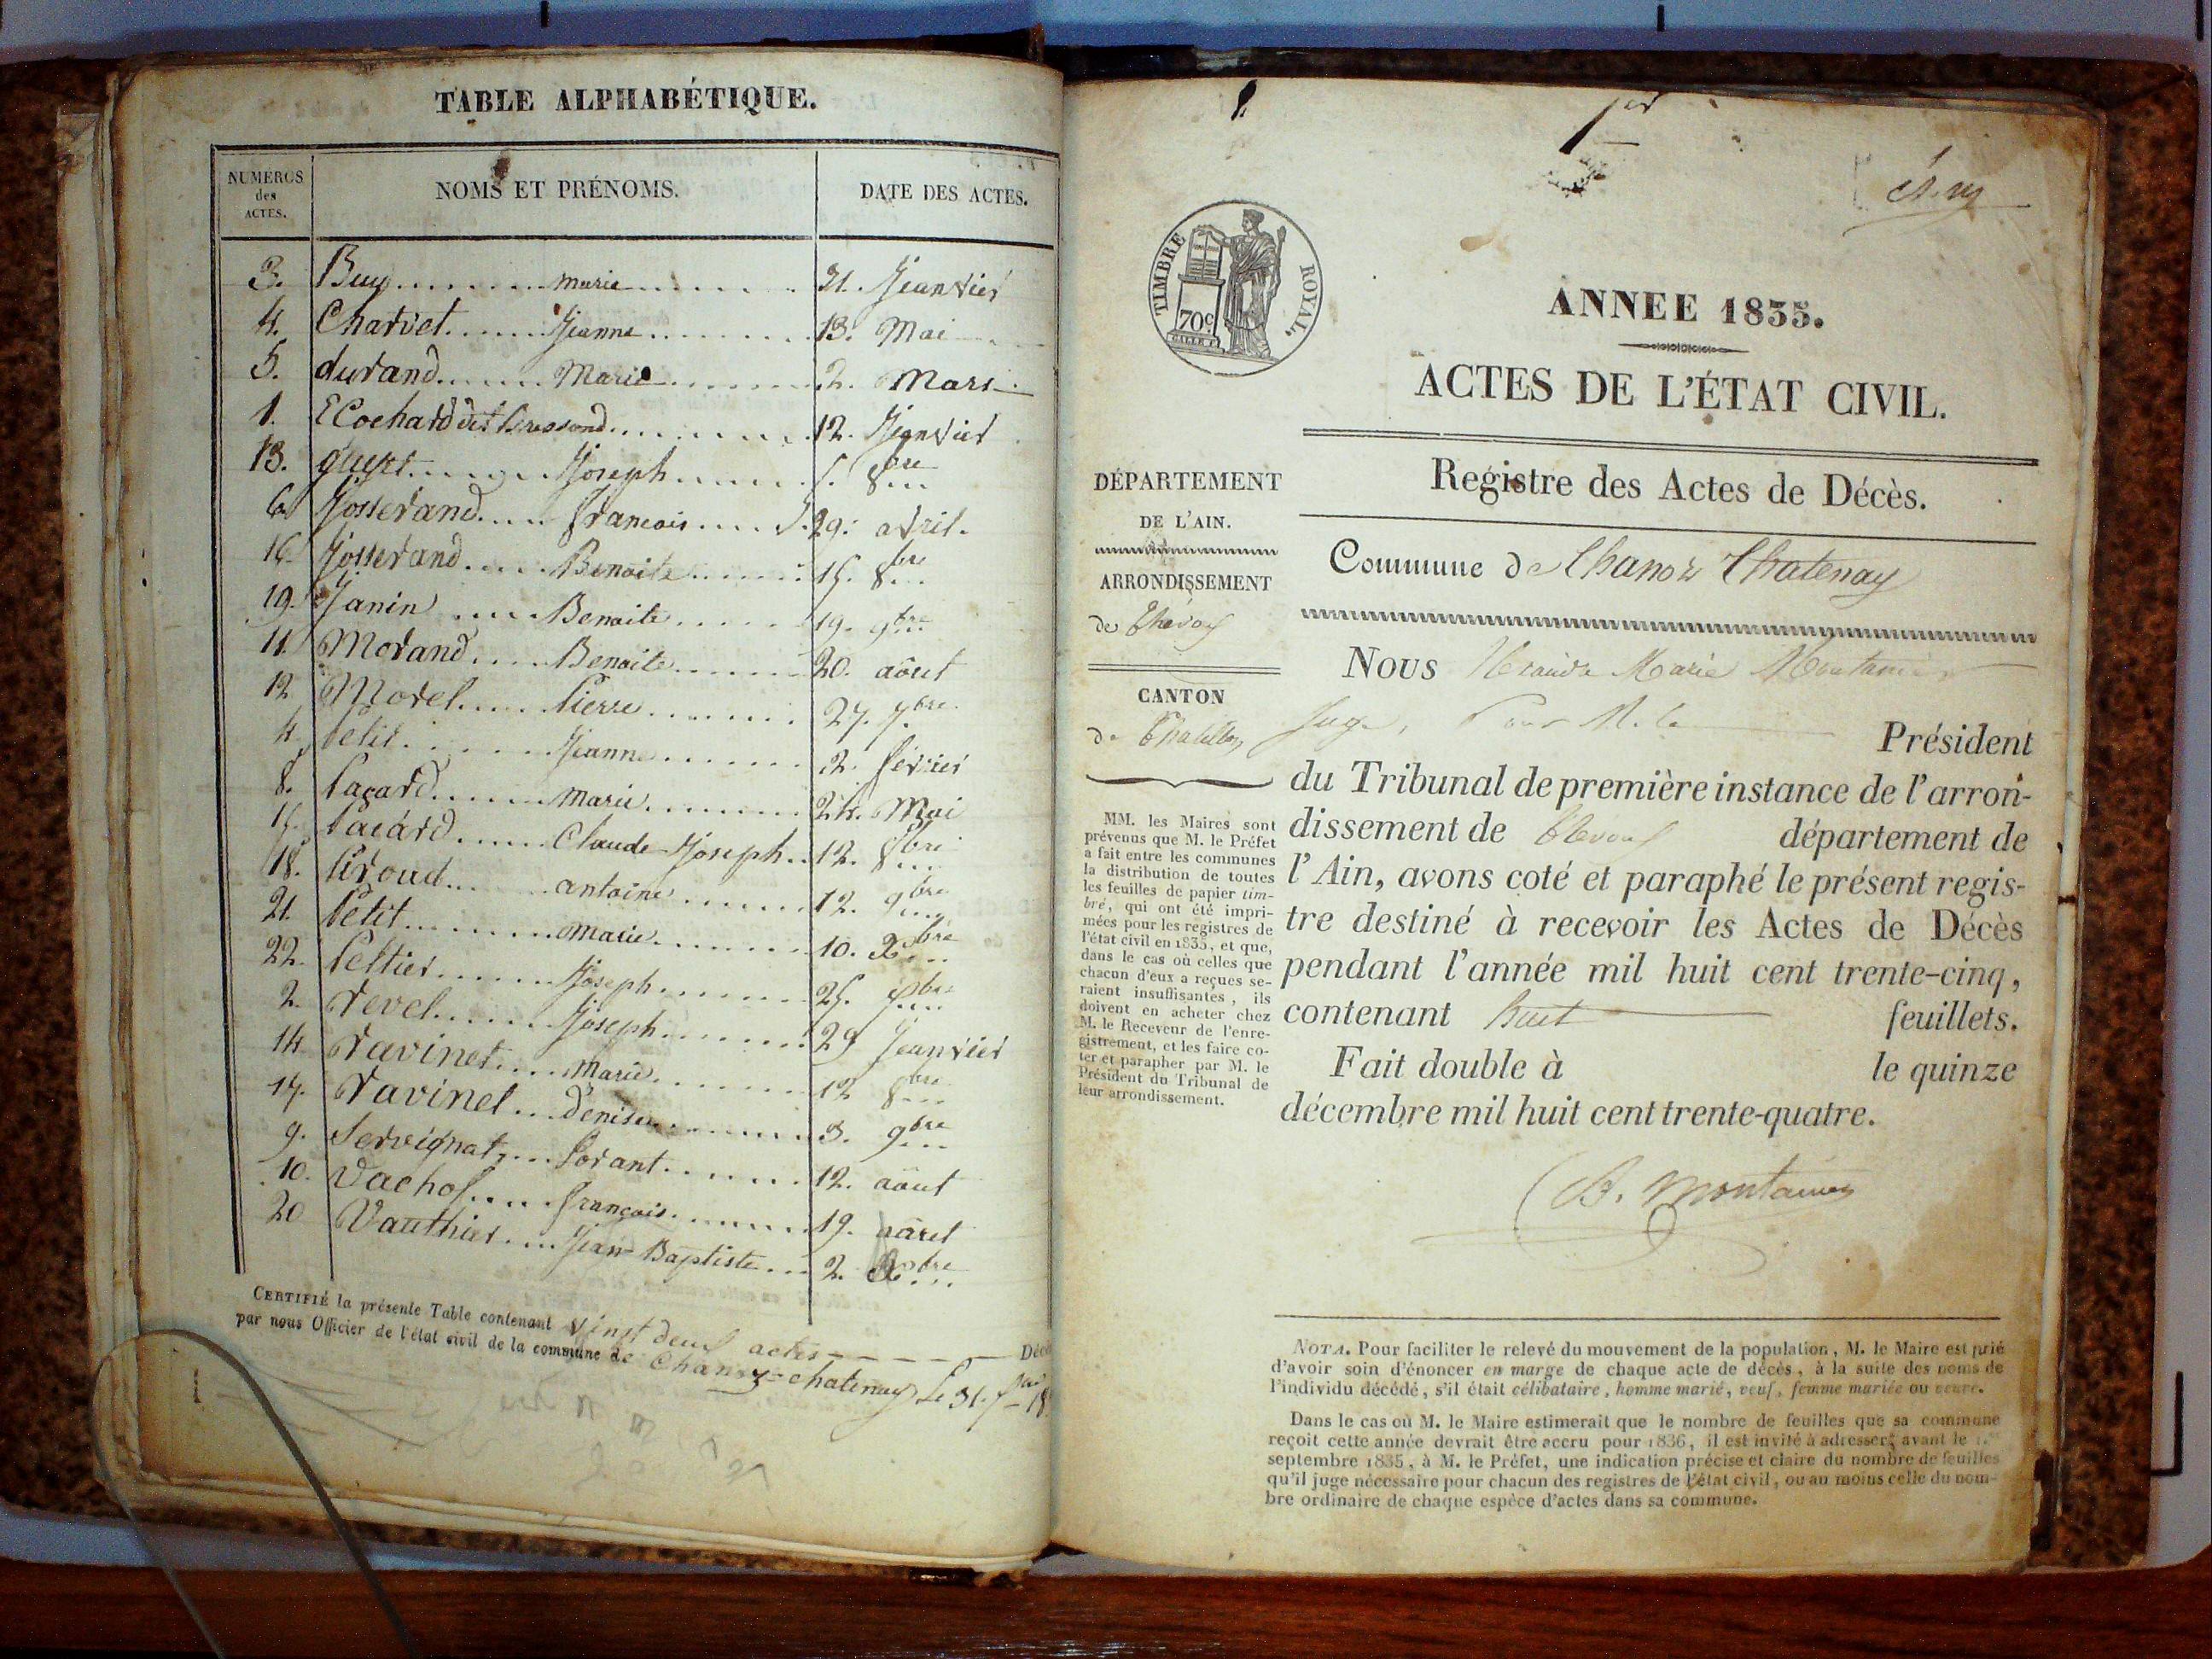 TABLE ALPHABÉTIQUE.
NUMÉROS des ACTES. NOMS ET PRÉNOMS. DATE DES ACTES.
3. Buy marie 21. Jeanvier
4. Charvet Jeanne 13. Mai
5. durand Marie 2. Mars
1. Cochard dit 12. Jeanvier
13. Joseph 8bre
6. Josserand francois 29. avril.
16. Josserand Benoite 15. 8bre
19. Janin Benoite 19. 9bre
11. Morand Benoite 20. aôut
12. Morel Pierre 27. 7bre
4. Petit Jeanne 2. février
8. Paçard marie 24. Mai
15. Pacard Claude Joseph 12. 8bre
18. Piroud antoine 12. 9bre
21. Petit marie 10. Xbre
22. Peltier Joseph 25.
2. revel Joseph 29 Jeanvier
14. ravinet marie 12 8bre
17. ravinel denise 3. 9bre
9. Servignat, 12. aôut
10. Vachol françois 19.
20 Vauthier Jean-Baptiste 2. Xbre
CERTIFIÉ la présente Table contenant vingt deux actes Déc
par nous Officier de l'état civil de la commune de Chanoz-chatenay Le 31. 18
1
1er
TIMBRE ROYAL.
70c
ANNEE 1835.
ACTES DE L'ÉTAT CIVIL.
Registre des Actes de Décès.
DÉPARTEMENT
DE L'AIN.
ARRONDISSEMENT
de Trévoux
CANTON
de Chatillon
MM. les Maires sont
prévenus que M. le Préfet
a fait entre les communes
la distribution de toutes
les feuilles de papier tim-
bré, qui ont été impri-
mées pour les registres de
l'état civil en 1835, et que,
dans le cas où celles que
chacun d'eux a reçues se-
raient insuffisantes, ils
doivent en acheter chez
M. le Receveur de l'enre-
gistrement, et les faire co-
ter et parapher par M. le
Président du Tribunal de
leur arrondissement.
Commune de Chanoz Chatenay
Nous Claude Marie Montanier
Juge, Pour M. le Président
du Tribunal de première instance de l'arron-
dissement de Trévoux département de
l'Ain, avons coté et paraphé le présent regis-
tre destiné à recevoir les Actes de Décès
pendant l'année mil huit cent trente-cinq,
contenant huit feuillets.
Fait double à le quinze
décembre mil huit cent trente-quatre.
Montanier
NOTA. Pour faciliter le relevé du mouvement de la population, M. le Maire est prié
d'avoir soin d'énoncer en marge de chaque acte de décès, à la suite des noms de
l'individu décédé, s'il était célibataire, homme marié, veuf, femme mariée ou veuve.
Dans le cas où M. le Maire estimerait que le nombre de feuilles que sa commune
reçoit cette année devrait être accru pour 1836, il est invité à adresser, avant le 1.er
septembre 1835, à M. le Préfet, une indication précise et claire du nombre de feuilles
qu'il juge nécessaire pour chacun des registres de l'état civil, ou au moins celle du nom-
bre ordinaire de chaque espèce d'actes dans sa commune.